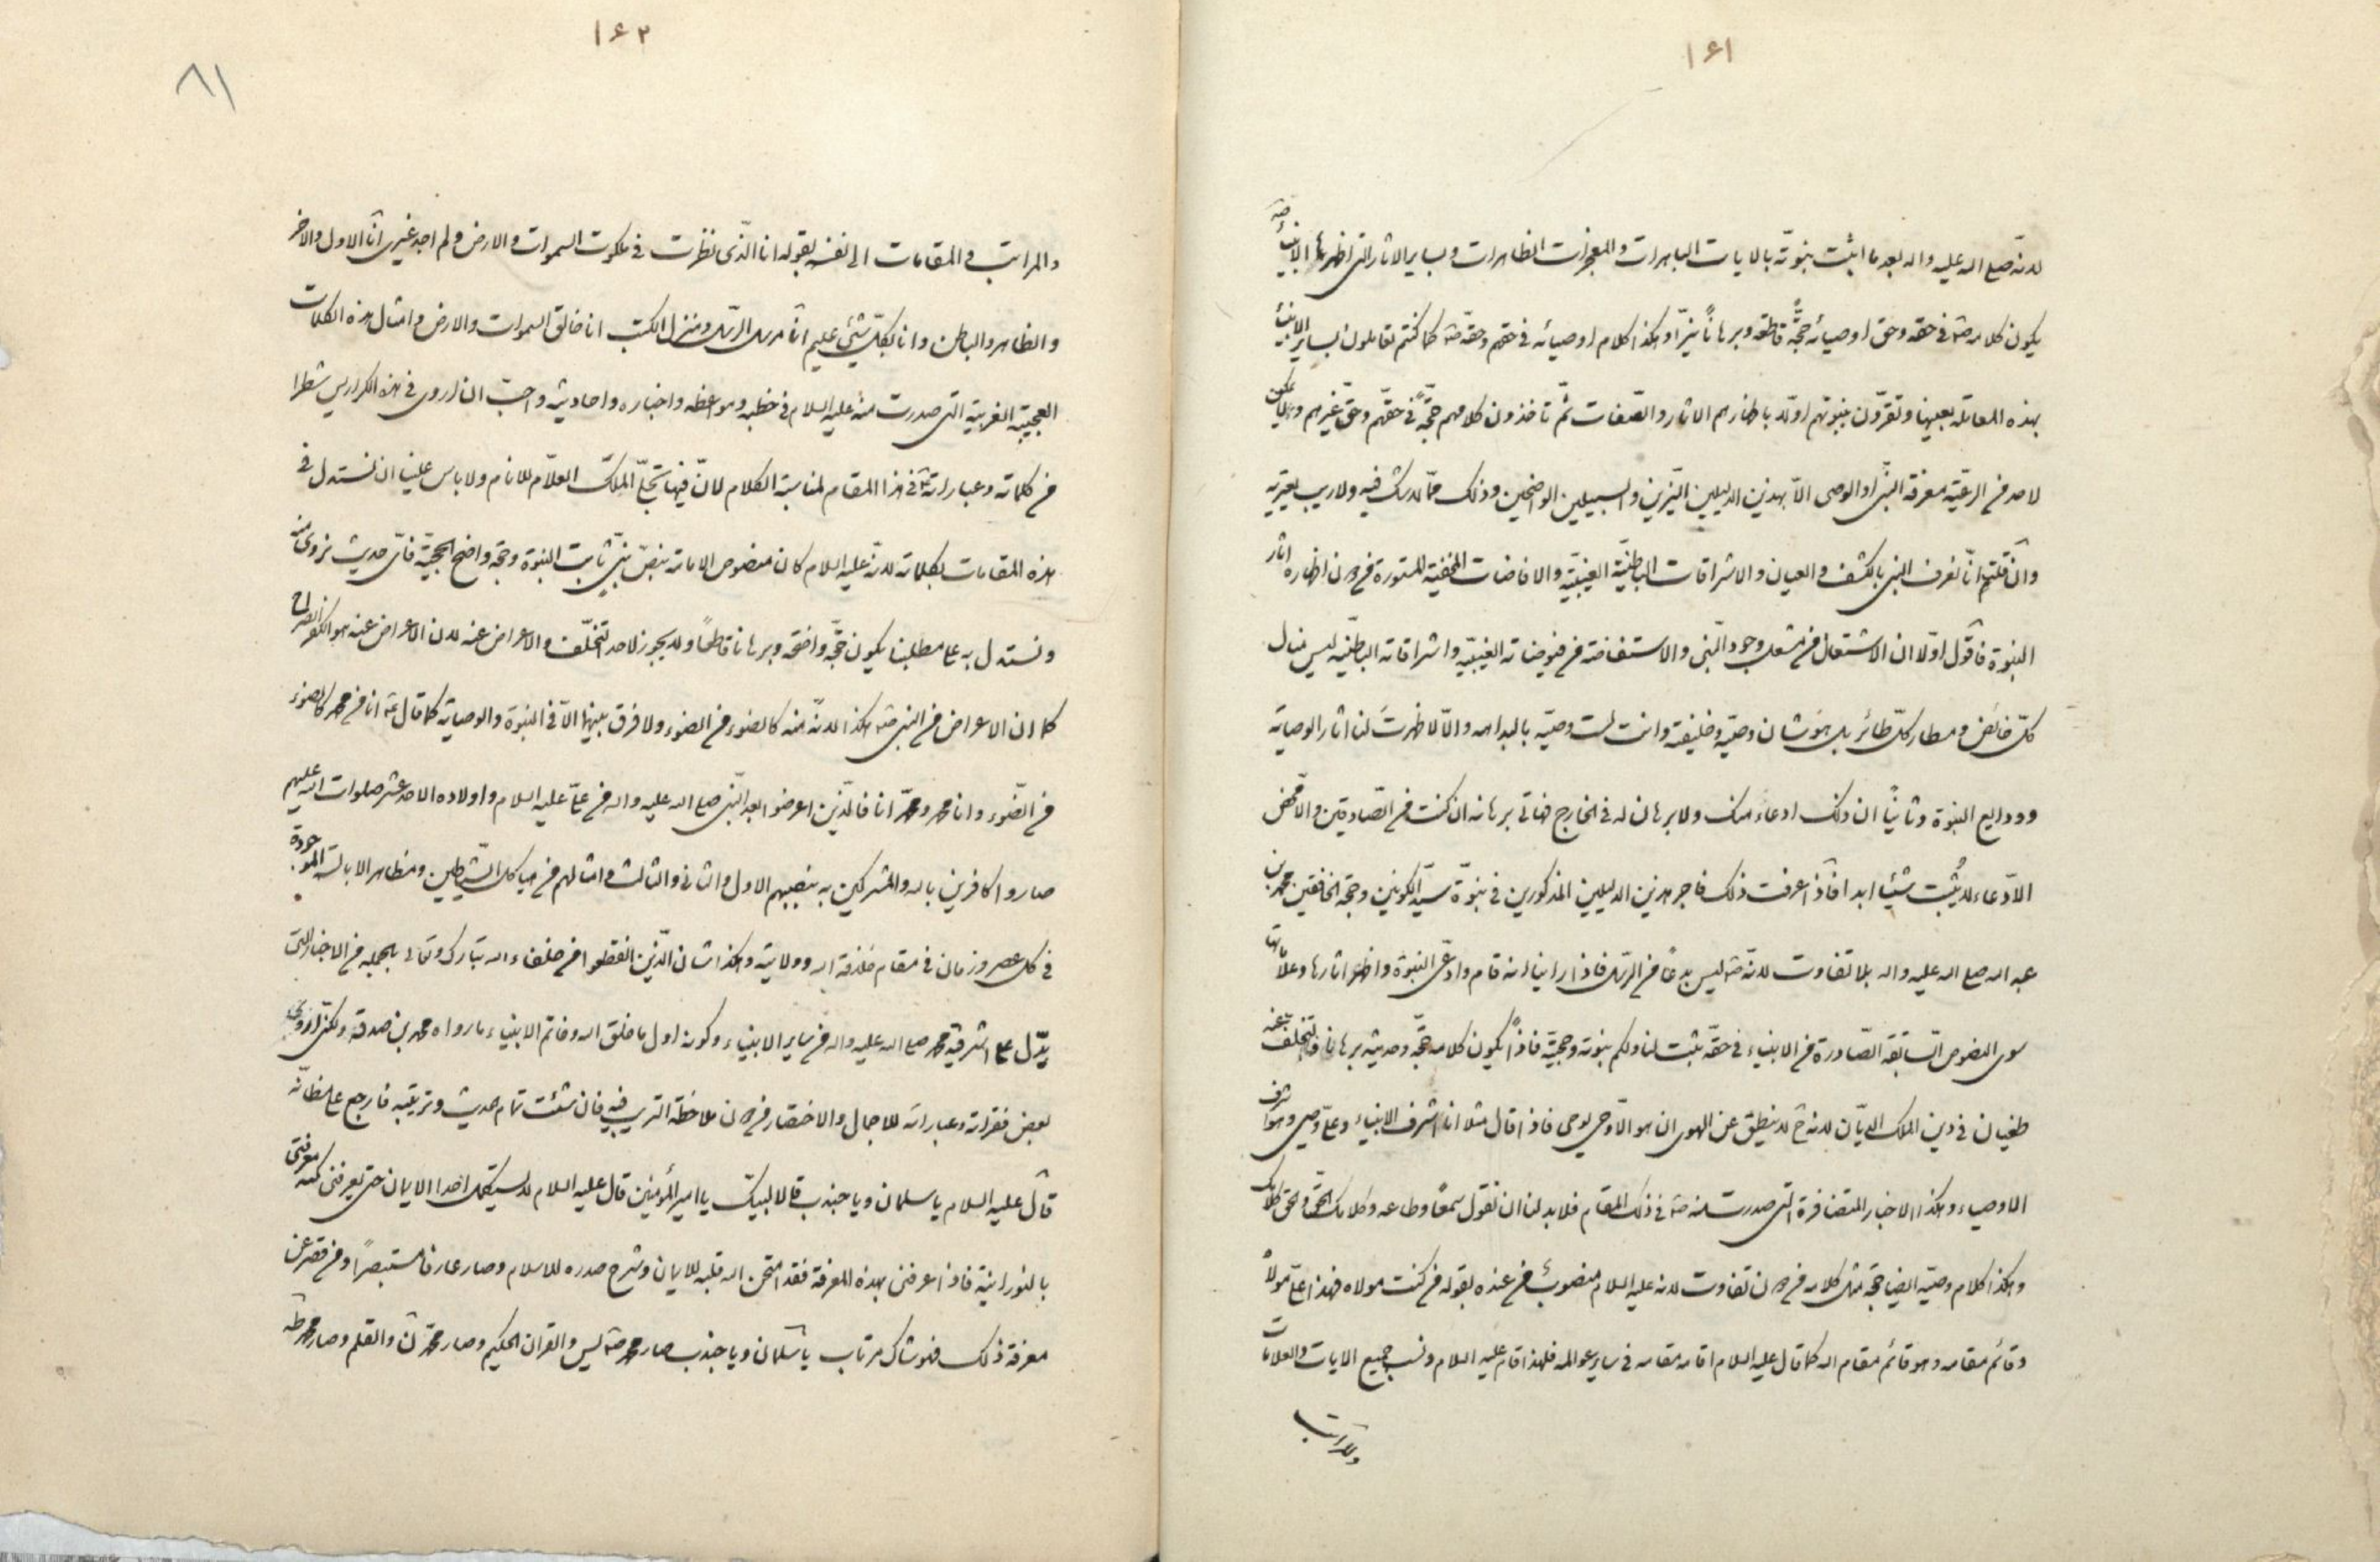 ١۶١
لانه صلى الله عليه واله بعد ما اثبت نبوته بالايات الباهرات والمعجزات الظاهرات وبساير الاثار التى اظهرها الانبياء
يكون كلامه صه فى حقه وحق اوصيائه حجّةً قاطعه وبرهاناً نيّراً وهكذا كلام اوصيائه فى حقهم وحقه صه كما كنتم تعاملون بساير الانبياء
بهذه المعامله بعينها وتقرّون بنبوتهم اولا باظهارهم الاثار والصّفات ثمّ تاخذون كلامهم حجّةً فى حقهم وحقّ غيرهم ولا يمكن
لاحد من الرعيّة معرفة النبى او الوصى الاّ بهذين الدليلين النيّرين والسبيلين الواضحين وذلك ممّا لا شك فيه ولا ريب يعتريه
وان قلتم انّا نعرف النبى بالكشف والعيان والاشراقات الباطنيّة الغيبيّة والافاضات الخفيّة المستورة من دون اظهاره اثار
النبوة فاقول اوّلا ان الاشتعال من مشعل وجود النّبى والاستفاضة من فيوضاته الغيبيّه واشراقاته الباطنيّه ليس منال
كلّ خائض ومطار كلّ طائر بل هو شان وصيّه وخليفته وانت لست وصيّه بالبداهه والاّ لاظهرتَ لنا اثار الوصاية
وودايع النبوة وثانياً ان ذلك ادعاء منك ولا برهان له فى الخارج فهاتى برهانه ان كنت من الصّادقين والاّ فمحض
الادّعاء لا يُثبت شيئا ابدا فاذا عرفت ذلك فاجر هذين الدليلين المذكورين فى نبوّة سيّد الكونين وحجة الخافقين محمد بن
عبد الله صلى الله عليه واله بلا تفاوت لانه صه ليس بدعاً من الرسل فاذا راينا انه قام وادّعى النبوة واظهر اثارها وعلاماتها
سوى النصوص السّابقة الصّادرة من الانبياء فى حقّه يثبت لنا ولكم نبوته وحجيّته فاذاً يكون كلامه حجّة وحديثه برهانا والتخلّف عنه
طغيان فى دين الملك الديّان لانه لا ينطق عن الهوى ان هو الاّ وحى يوحى فاذا قال مثلا انا اشرف الانبياء وعلىّ وصيى وهو اشرف
الاوصياء وهكذا الاخبار المتضافرة التى صدرت منه صه فى ذلك المقام فلا بد لنا ان نقول سمعًا وطاعه وكلامك الحقّ والحق كلامك
وهكذا كلام وصيّه ايضا حجة مثل كلامه من دون تفاوت لانه عليه السلام منصوبٌ من عنده بقوله من كنت مولاه فهذا علىّ مولاه
وقائم مقامه وهو قائم مقام الله كما قال عليه السلام اقامه مقامه فى ساير عوالمه فلهذا اقام عليه السلام ونسب جميع الايات والعلامات
والمراتب
١۶٢
٨١
والمراتب والمقامات الى نفسه بقوله انا الّذى نظرت فى ملكوت السموات والارض ولم اجد غيرى انا الاول والاخر
والظاهر والباطن وانا بكلّ شئ عليم انا مرسل الرسل ومنزل الكتب انا خالق السموات والارض وامثال هذه الكلمات
العجيبة الغريبة التى صدرت منه عليه السلام فى خطبه ومواعظه واخباره واحاديثه واحبّ ان اروى فى هذه الكراريس شطرا
من كلماته وعباراته فى هذا المقام لمناسبة الكلام لانّ فيها تجلّى الملك العلاّم للانام ولا باس علينا ان نستدل فى
هذه المقامات بكلماته لانّه عليه السلام كان منصوص الامامة بنصّ نبىّ ثابت النبوة وحجة واضح الحجيّة فاىّ حديث نروى منه
ونستدل به على مطلبنا يكون حجّة واضحة وبرهانا قاطعاً ولا يجوز لاحد التخلّف والاعراض عنه لان الاعراض عنه هو الكفر الصراح
كما ان الاعراض من النبى صه هكذا لانّه منه كالضوء من الضوء ولا فرق بينهما الاّ فى النبوة والوصاية كما قال عه انا من محمد كالضوء
من الضّوء وانا محمد ومحمّد انا فالّذين اعرضوا بعد النّبى صلى الله عليه واله من علىّ عليه السلام واولاده الاحد عشر صلوات الله عليهم
صاروا كافرين بالله والمشركين به بنصبهم الاول والثانى والثالث وامثالهم من هياكل الشّياطين ومظاهر الابالسه الموجودة
فى كل عصر وزمان فى مقام خلافة الله وولايته وهكذا شان الّذين انقطعوا من خلفاء الله تبارك وتعالى بالجمله من الاخبار التى
يدّل على اشرفية محمد صلى الله عليه واله من ساير الانبياء وكونه اول ما خلق الله وخاتم الانبياء ما رواه محمد بن صدقة ولكنّى اروى
بعض فقراته وعباراته للاجمال والاختصار من دون ملاحظة الترتيب فيه فان شئت تمام الحديث وترتيبه فارجع على مظانّه
قال عليه السلام يا سلمان ويا جندب قالا لبيك يا امير المؤمنين قال عليه السلام لا يستكمل احدا الايمان حتى يعرفنى كنه معرفتى
بالنورانية فاذا عرفنى بهذه المعرفة فقد امتحن الله قلبه للايمان وشرح صدره للاسلام وصار عارفا مستبصراً ومن قصر عن
معرفة ذلك فهو شاك مرتاب يا سلمان ويا جندب صار محمد صه يس والقران الحكيم وصار محمّد ن والقلم وصار محمد طه